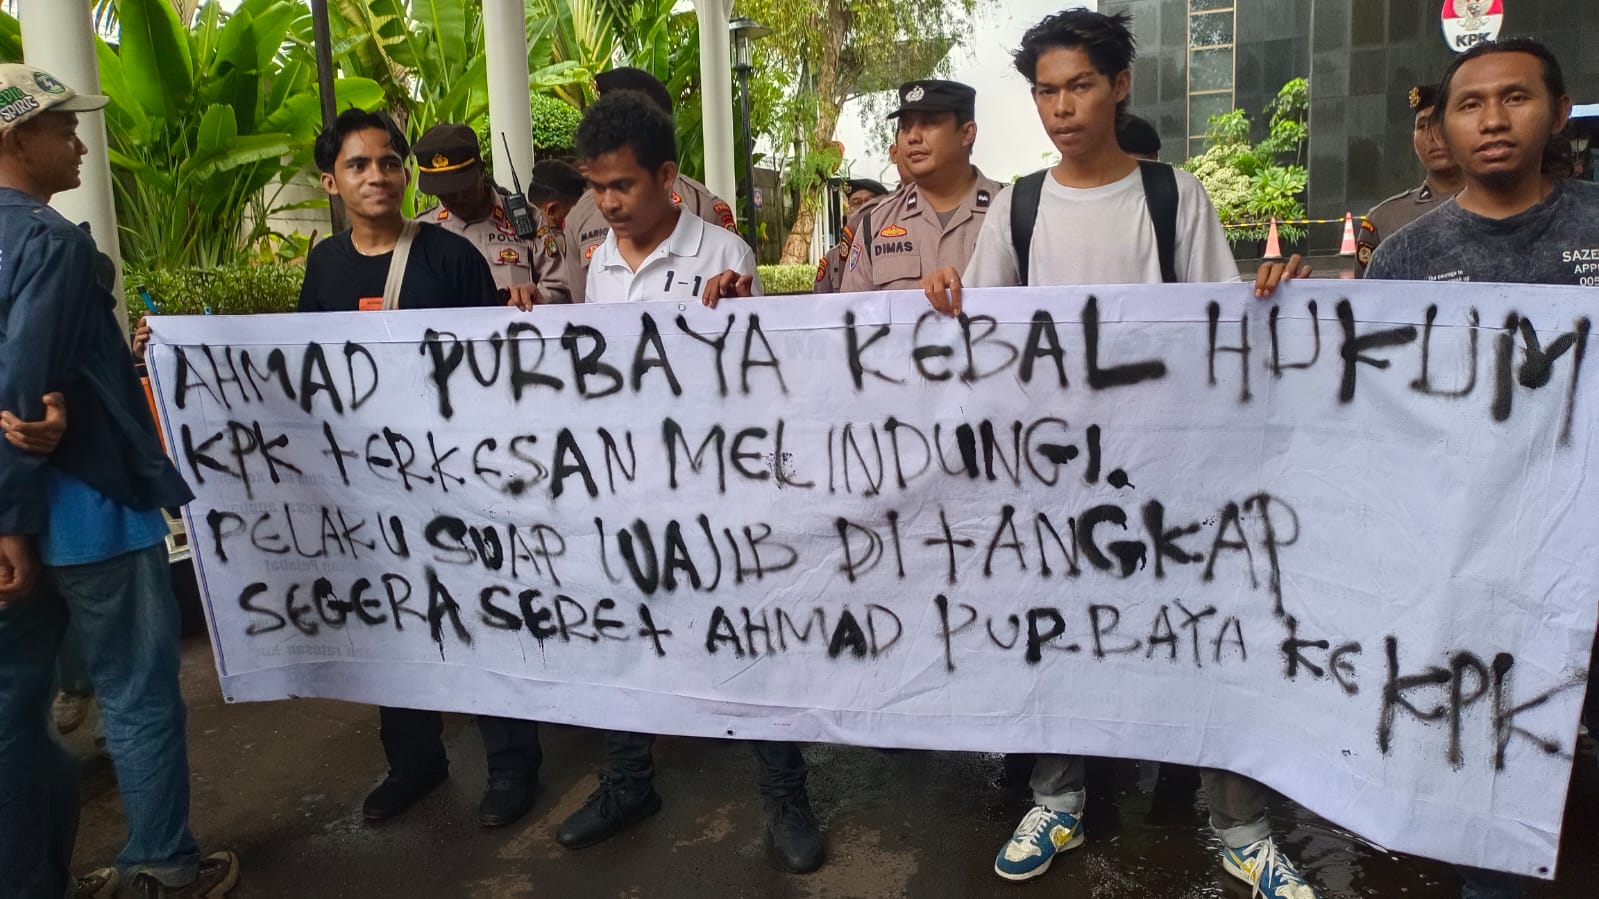 AHMAD PURBAYA KEBAL HUKUM
KPK tERKESAN MELINDUNGI.
PELAKU SUAP (UA)IB DItANGKAP
SEGERA SEREt AHMAD PURBAYA KE KPK
KPK
DIMAS
1-1
SPIRIT
SAZE
APP